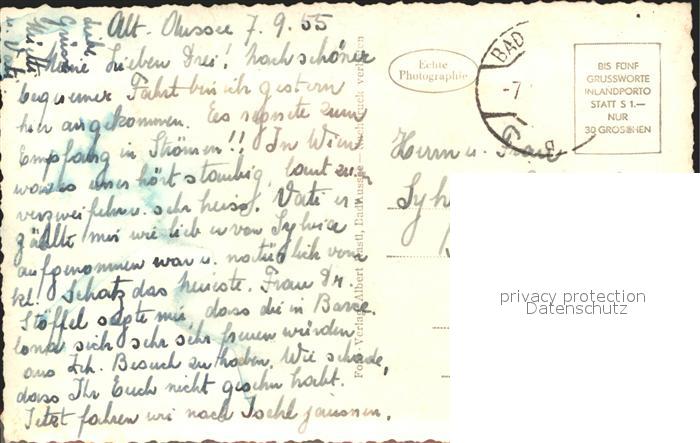 Alt-Aussee 7.9.55
Meine Lieben Drei! Nach schöner
bequemer Fahrt bin ich gestern
hier angekommen. Es regnete zum
Empfang in Strömen!! In Wien
war es unerhört staubig, laut zum
verzweifeln u. sehr heiss. Vati er
zählte mir wie lieb er von Sylvia
aufgenommen war u. natürlich vom
kl. Schatz das neueste. Frau Dr.
Stöffel sagte mir, dass die in Barce
lona sich sehr sehr freuen würden
aus Zch. Besuch zu haben. Wie schade,
dass Ihr Euch nicht gesehn habt.
Jetzt fahren wir nach Ischl jausnen.
Liebe
Grüsse
Mutti
u. Vati
Echte
Photographie
BAD
-7
BIS FÜNF
GRUSSWORTE
INLANDPORTO
STATT S 1.—
NUR
30 GROSCHEN
Herrn u. Frau
Sylv
Foto-Verlag Albert Rastl, Bad Aussee — Nachdruck verboten
privacy protection
Datenschutz